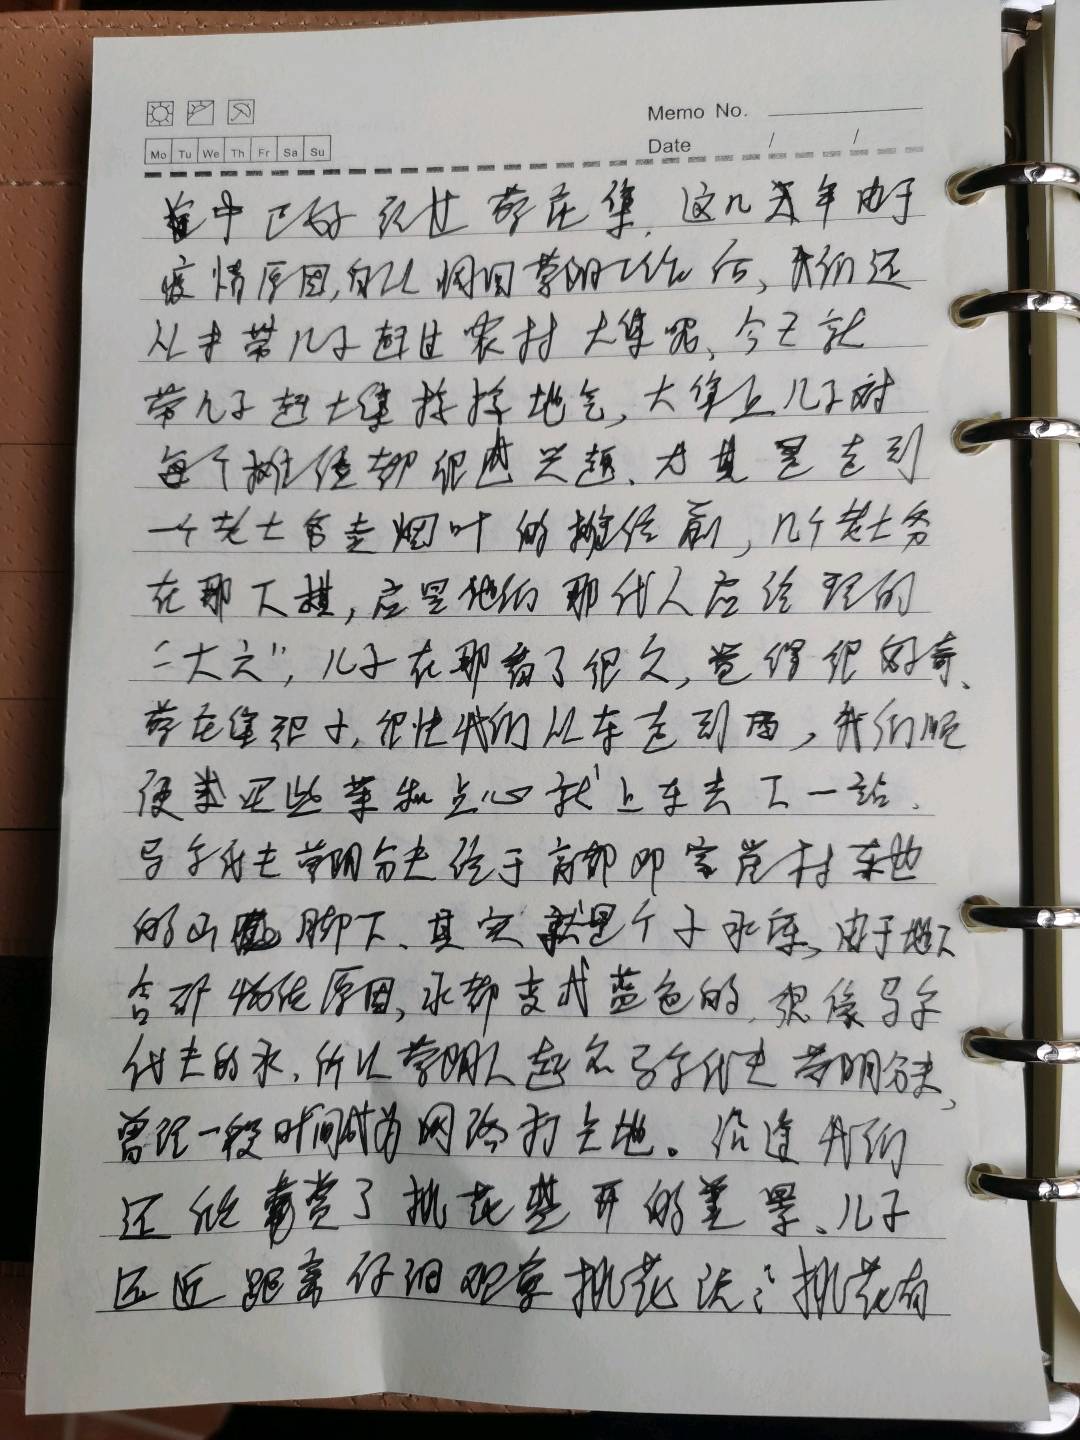 Memo No.
Date / /
Mo Tu We Th Fr Sa Su
途中正好经过 集，这几年由于
疫情原因，自从调回莱阳工作后，我们还
从未带儿子赶过农村大集呢，今天就
带儿子赶大集接接地气，大集上儿子对
每个摊位都很感兴趣，尤其是走到
一个老大爷卖烟叶的摊位前，几个老大爷
在那下棋，应是他们那代人应该玩的
"大六"，儿子在那看了很久，觉得很好奇、
集很小，很快我们从东走到西，我们顺
便买些菜和点心就上车去下一站．
马尔代夫莱阳分夫位于 家 村东边
的山脚下、其实就是个子水库，由于地下
含矿物质原因，水都变成蓝色的，很像马尔
代夫的水，所以莱阳人起名马尔代夫莱阳分夫，
曾经一段时间成为网络打卡地。沿途我们
还欣赏了桃花盛开的美景、儿子
还近距离仔细观察桃花说：桃花有